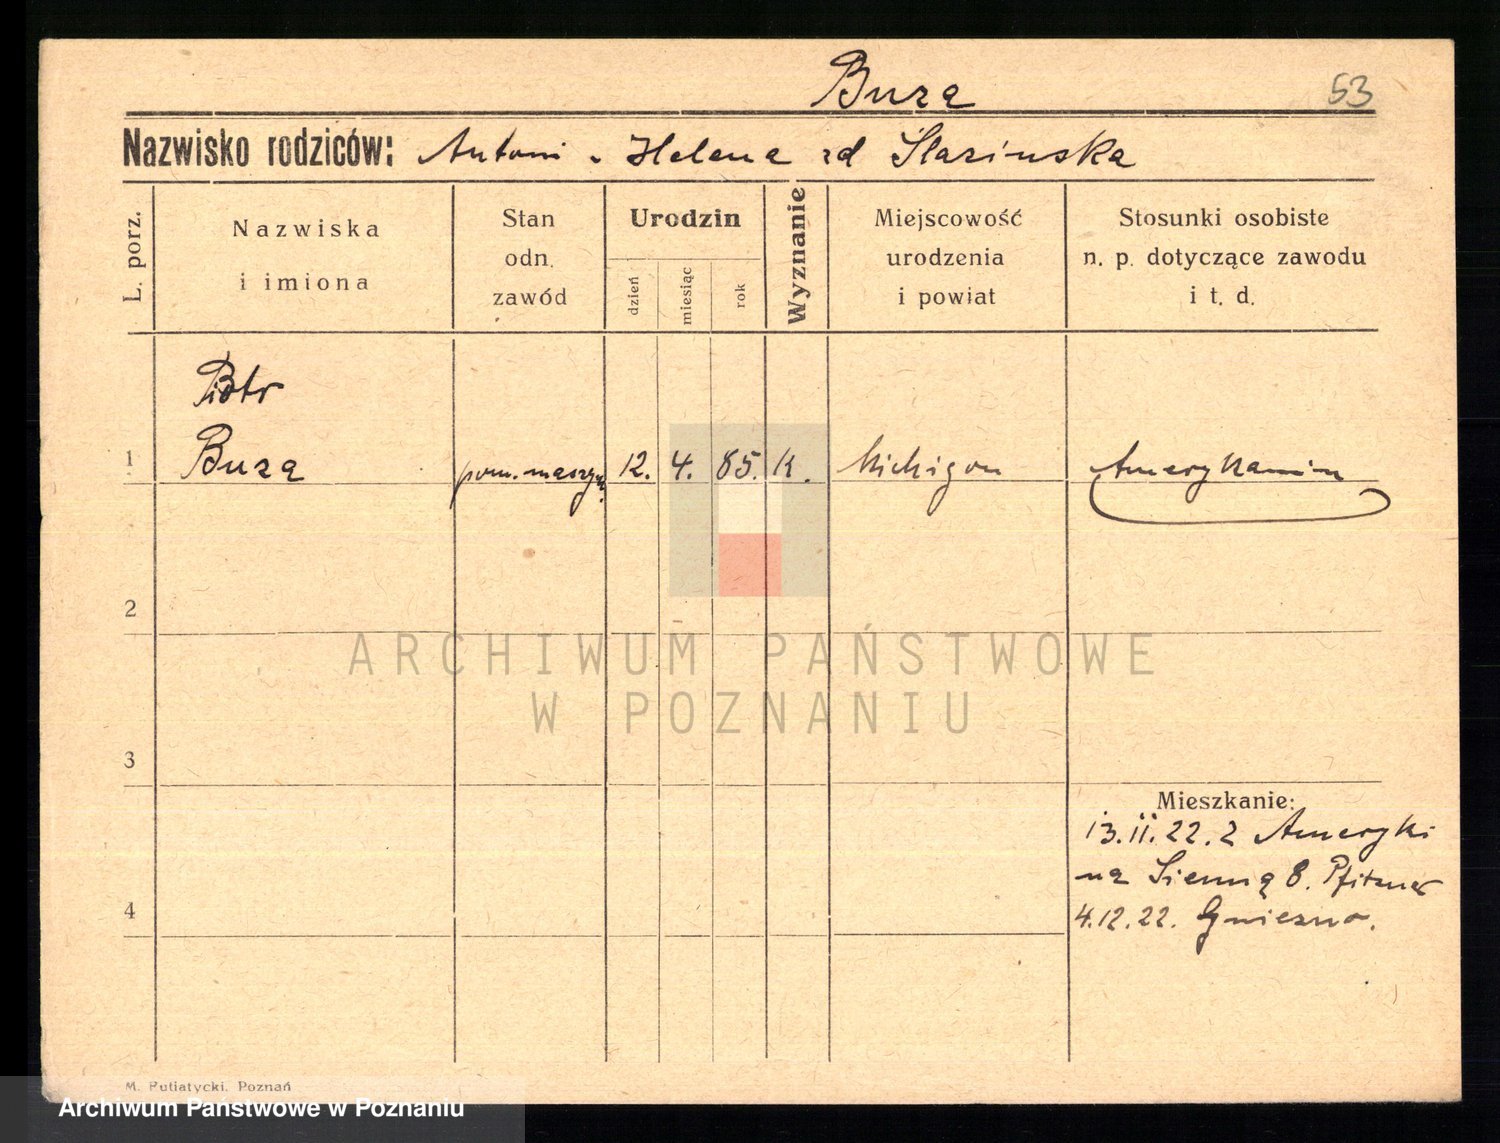 Buza
53
Nazwisko rodziców: Antoni i Helena zd
L. porz.
Nazwiska
i imiona
Stan
odn.
zawód
Urodzin
dzień
miesiąc
rok
Wyznanie
Miejscowość
urodzenia
i powiat
Stosunki osobiste
n. p. dotyczące zawodu
i t. d.
Piotr
1 Buza pom. maszyn. 12. 4. 85. K. Michigan Amerykanin
2
ARCHIWUM PAŃSTWOWE
W POZNANIU
3
Mieszkanie:
13.II.22. z Ameryki
na Sienną 8. Pfitzner
4
4.12.22. Gniezno.
M. Putiatycki, Poznań
Archiwum Państwowe w Poznaniu